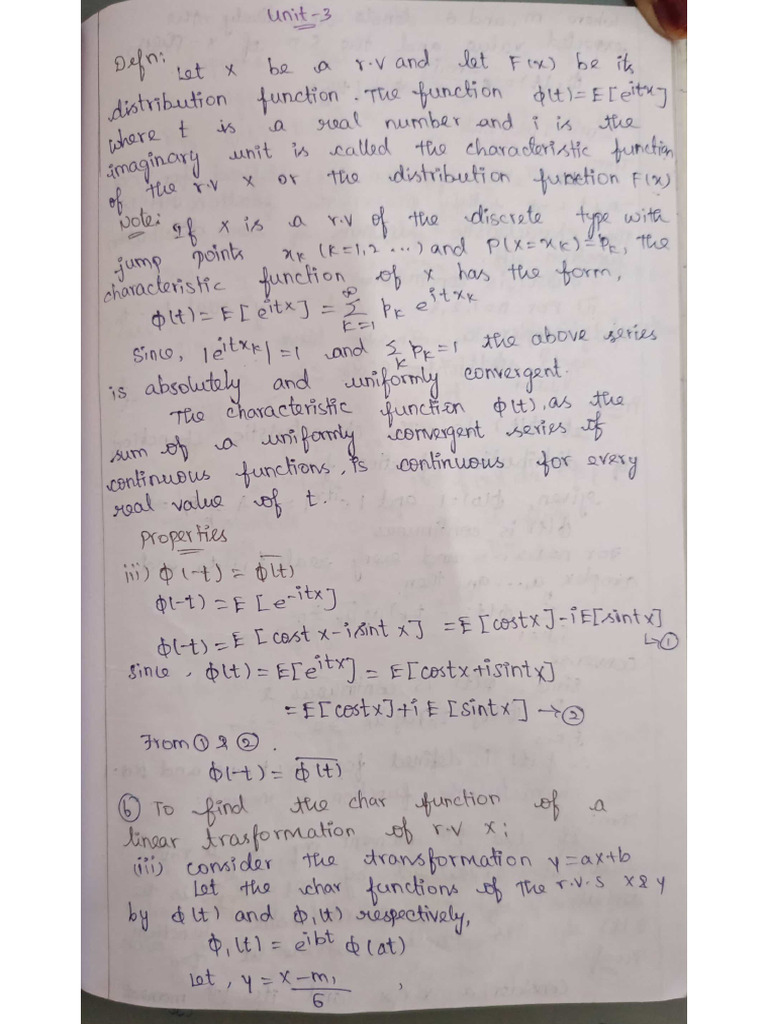 Unit-3
Defn: Let x be a r.v and let F(x) be its
distribution function. The function ϕ(t)=E[e^{itx}]
where t is a real number and i is the
imaginary unit is called the characteristic function
of the r.v x or the distribution function F(x)
Note: If x is a r.v of the discrete type with
jump points x_k (k=1,2 ...) and P(X=x_k)=p_k, the
characteristic function of x has the form,
ϕ(t)=E[e^{itx}] = ∞ Σ k=1 p_k e^{itx_k}
Since, |e^{itx_k}|=1 and Σ_k p_k=1 the above series
is absolutely and uniformly convergent.
The characteristic function ϕ(t), as the
sum of a uniformly convergent series of
continuous functions, is continuous for every
real value of t.
Properties
iii) ϕ(-t) = \overline{ϕ(t)}
ϕ(-t) = E[e^{-itx}]
ϕ(-t) = E[cost x - i sint x] = E[costx] - iE[sintx] ↳①
since, ϕ(t) = E[e^{itx}] = E[costx+isintx]
= E[costx]+i E[sintx] → ②
From ① & ②.
ϕ(-t) = \overline{ϕ(t)}
⑥ To find the char function of a
linear trasformation of r.v x;
(iii) consider the transformation y=ax+b
Let the char functions of the r.v.s x & y
by ϕ(t) and ϕ₁(t) respectively,
ϕ₁(t) = e^{ibt} ϕ(at)
Let, y = \frac{x-m₁}{6} ,